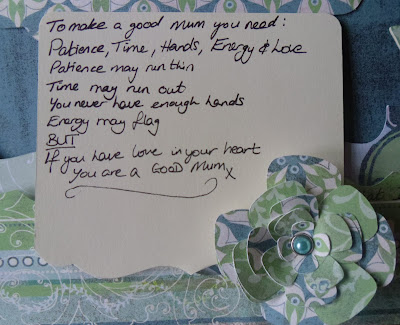 To make a good mum you need:
Patience, Time, Hands, Energy & Love
Patience may run thin
Time may run out
You never have enough hands
Energy may flag
BUT
If you have love in your heart
You are a GOOD Mum x